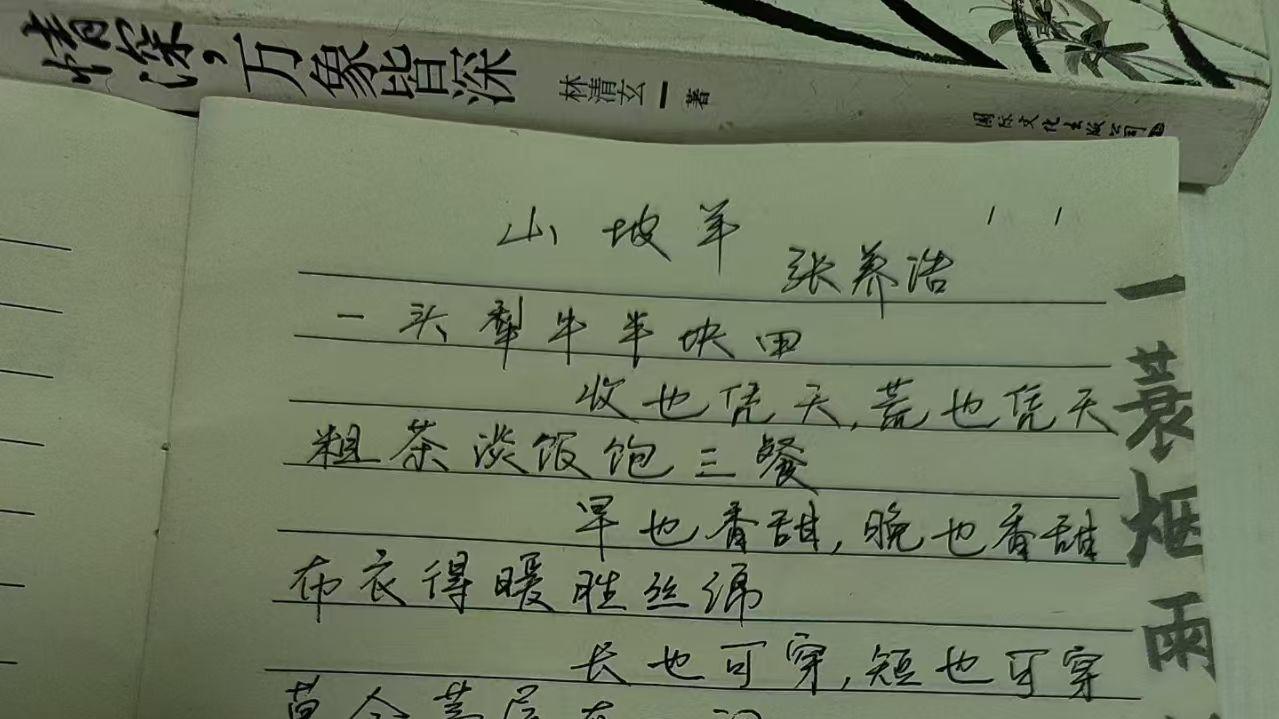 情深，万象皆深
林清玄 — 著
国际文化出版公司
山坡羊
张养浩
一头犁牛半块田
收也凭天，荒也凭天
粗茶淡饭饱三餐
早也香甜，晚也香甜
布衣得暖胜丝绵
长也可穿，短也可穿
草
一蓑烟雨